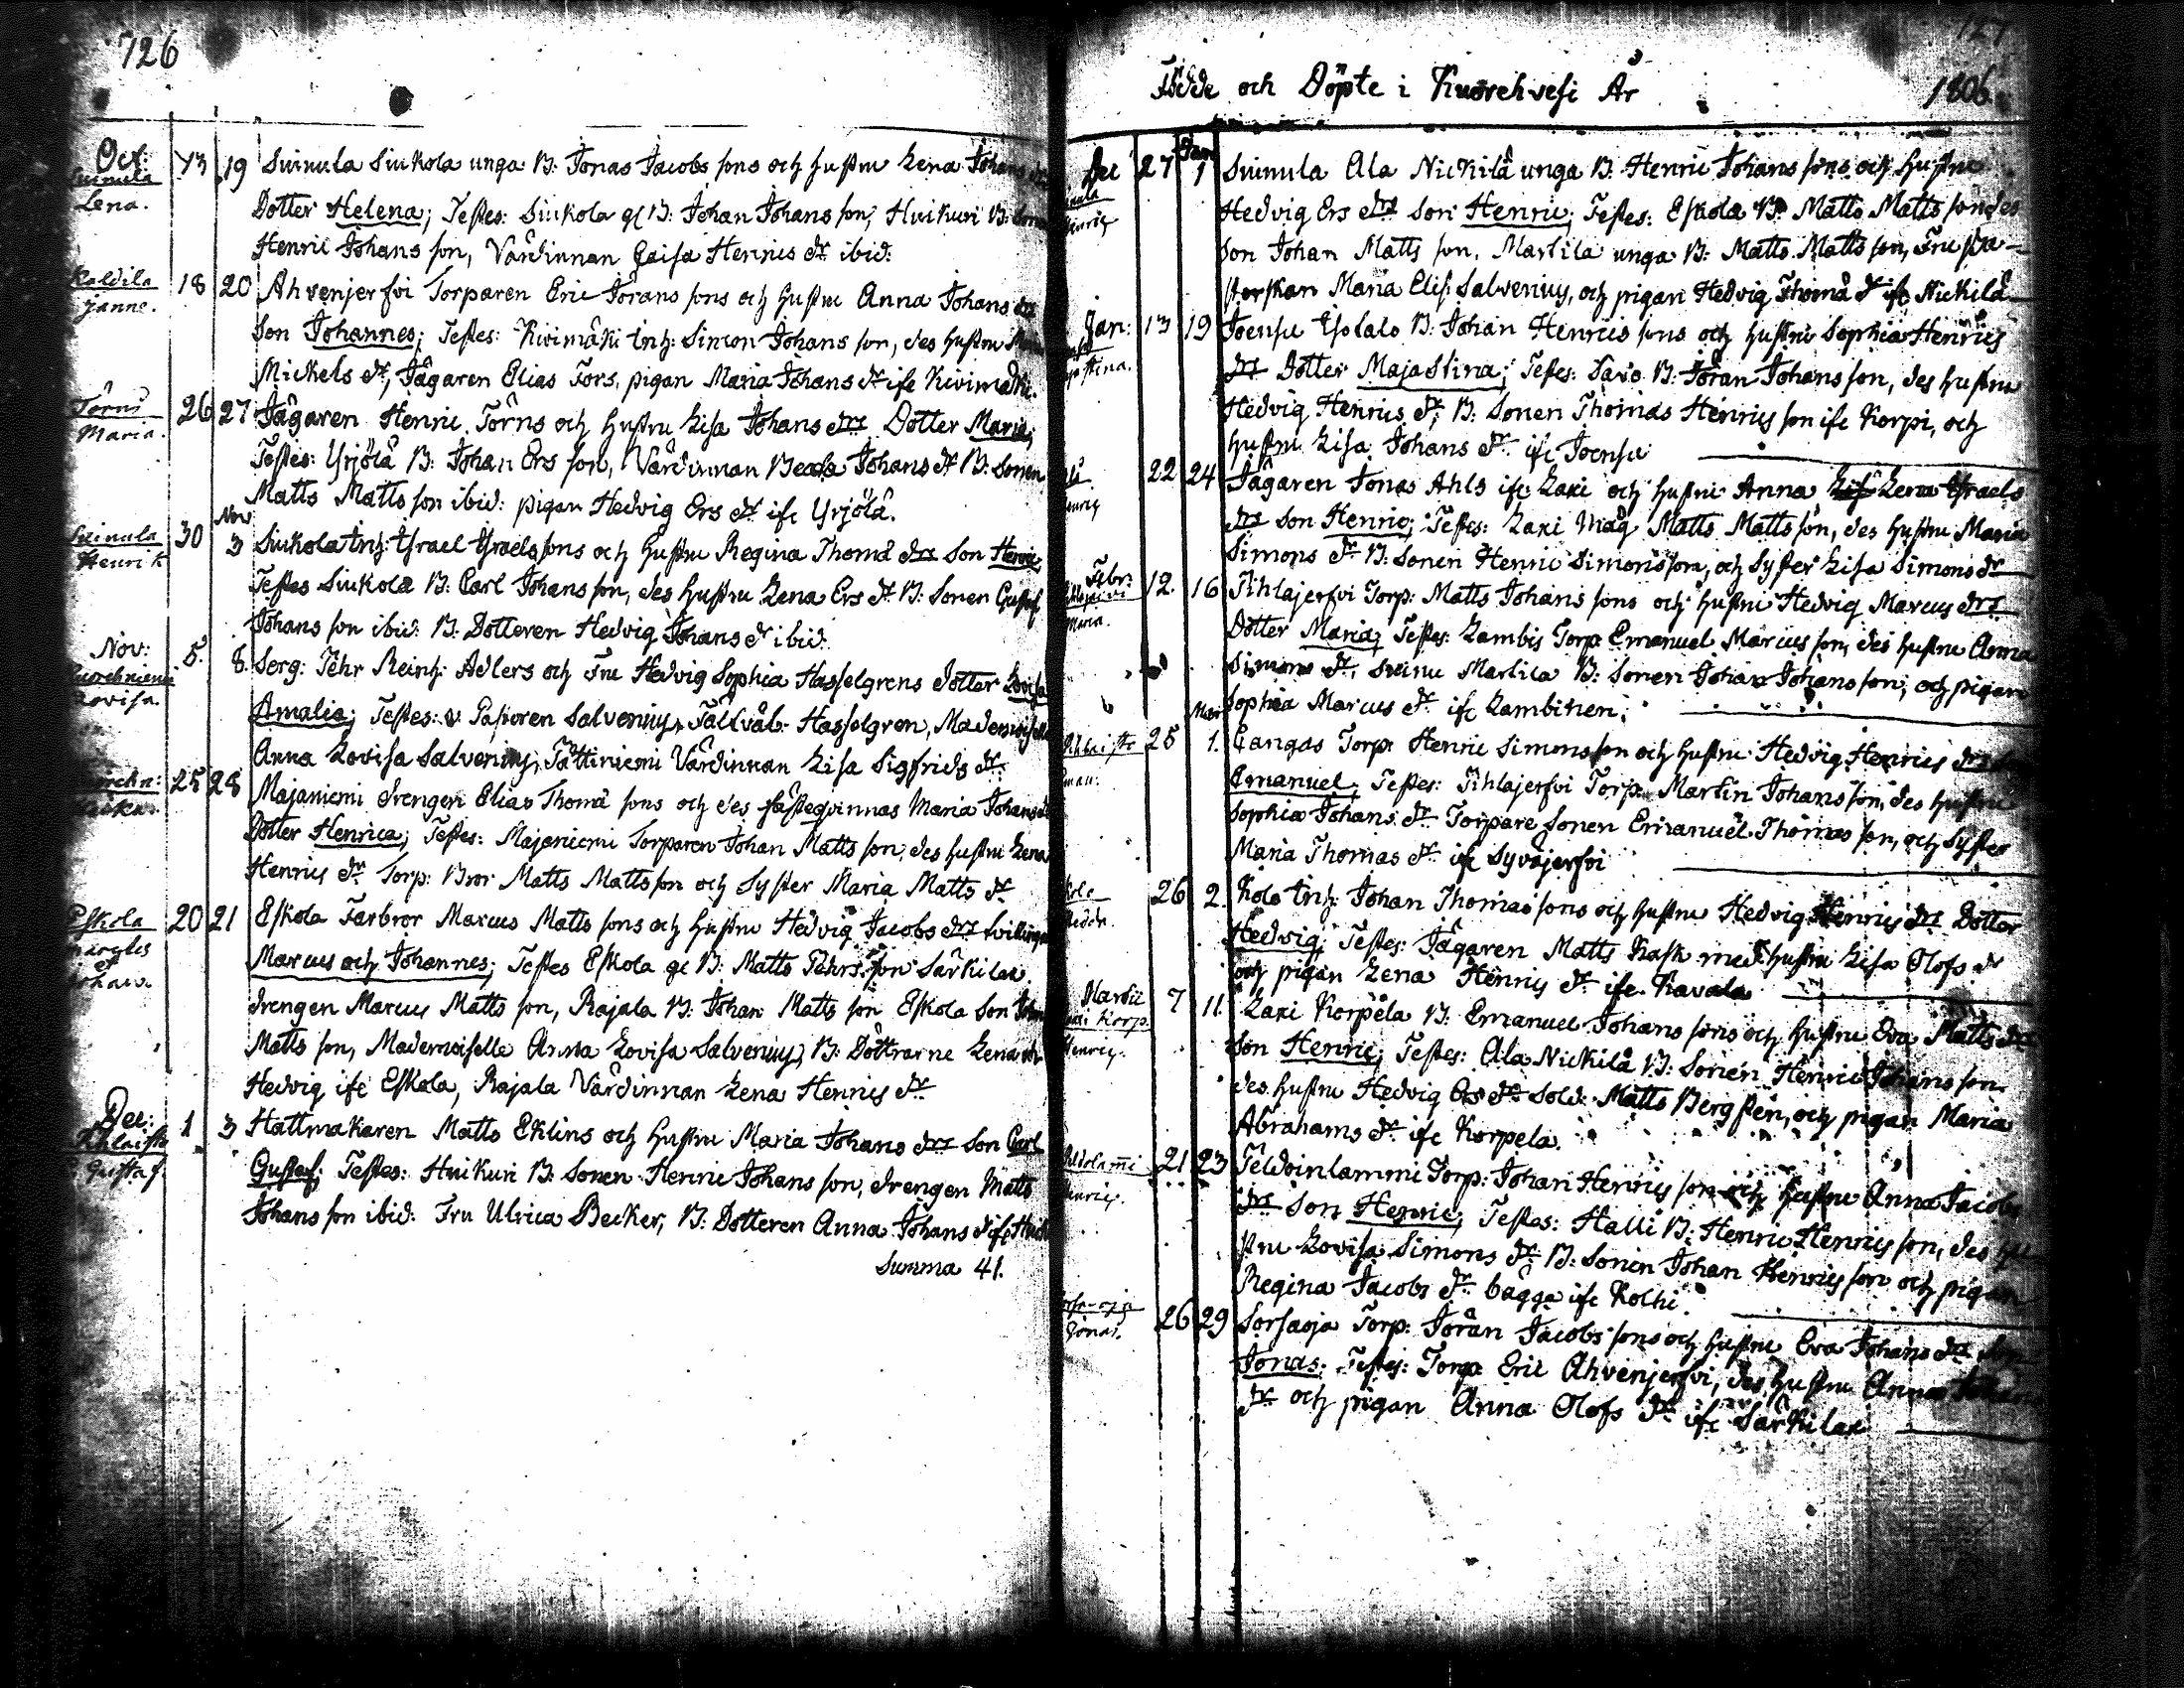 726
Oct: 13 19 Suinula Siukola unga B: Jonas Jacobs sons och hustru Lena Johans
Suinula Lena.
Dotter Helena; Testes: Siukola gl B: Johan Johans son, Huikuri B:
Henric Johans son, Värdinnan Caisa Henrics dr ibid:
Janne.
18 20 Ahvenjerfvi Torparen Eric Jörans sons och hustru Anna Johans
Son Johannes; Testes: Kivimäki Inh: Simon Johans son, des hustru
Mickels dr, Jägaren Elias Fors, pigan Maria Johans dr ifr Kivimäki.
Törns Maria.
26 27 Jägaren Henric Törns och hustru Lisa Johans drs Dotter Maria;
Testes: Yrjölä B: Johan Ers son, Värdinnan Beata Johans dr B: Sonen
Matts Matts son ibid: pigan Hedvig Ers dr ifr Yrjölä.
Suinula Henrik
30 Nov 3 Siukola Inh: Israel Israels sons och hustru Regina Thomä drs Son Henric,
Testes Siukola B: Carl Johans son, des hustru Lena Ers dr B: Sonen Gustaf
Johans son ibid: B: Dotteren Hedvig Johans dr ibid:
Nov: 5. 8. Serg: Pehr Reinh: Adlers och Fru Hedvig Sophia Hasselgrens Dotter Lovisa
Lovisa.
Amalia; Testes: Pastoren Salvenius, Fältväb: Hasselgren, Mademoiselle
Anna Lovisa Salvenius, Pättiniemi Värdinnan Lisa Sigfrids dr.
25 28 Majaniemi drengen Elias Thomä sons och des fästeqvinnas Maria Johans
Dotter Henrica; Testes: Majaniemi Torparen Johan Matts son, des hustru Lena
Henrics dr Torp: Bror Matts Matts son och Syster Maria Matts dr
Eskola
20 21 Eskola Farbror Marcus Matts sons och hustru Hedvig Jacobs drs tvillingar
Marcus och Johannes; Testes Eskola gl B: Matts Pehrs son Särkilax
drengen Marcus Matts son, Rajala B: Johan Matts son Eskola Son
Matts son, Mademoiselle Anna Lovisa Salvenius, B: Döttrarne Lena och
Hedvig ifr Eskola, Rajala Värdinnan Lena Henrics dr
Dec: 1 3 Hattmakaren Matts Eklins och hustru Maria Johans drs Son Carl
Gustaf.
Gustaf; Testes: Huikuri B: Sonen Henric Johans son, drengen Matts
Johans son ibid: Fru Ulrica Becker, B: Dotteren Anna Johans d ifr
Summa 41.
127
Födde och Döpte i Kuorehvesi År 1806.
Dec 27 Jan 1 Suinula Ala Nickilä unga B: Henric Johans sons och hustru
Hedvig Ers drs Son Henric; Testes: Eskola B: Matts Matts sons des
Son Johan Matts son, Martila unga B: Matts Matts son, Fru Pa-
storskan Maria Elis: Salvenius, och pigan Hedvig Thomä dr ifr Nickilä
Jan: 13 19 Joensu Isotalo B: Johan Henrics sons och hustru Sophia Henrics
drs Dotter Maja Stina; Testes: Paro B: Jöran Johans son, des hustru
Hedvig Henrics dr, B: Sonen Thomas Henrics son ifr Korpi, och
hustru Lisa Johans dr ifr Joensu
22 24 Jägaren Jonas Ahls ifr Laxi och hustru Anna Lena Israels
drs Son Henric; Testes: Laxi Måg Matts Matts son, des hustru Maria
Simons dr B: Sonen Henric Simons son, och Syster Lisa Simons dr
Febr: 12. 16 Pihlajerfvi Torp: Matts Johans sons och hustru Hedvig Marcus drs
Maria.
Dotter Maria; Testes: Lambis Torp: Emanuel Marcus son, des hustru Anna
Simons dr, Martila B: Sonen Johan Johans son, och pigan
Sophia Marcus dr ifr Lambinen;
25 Mar 1. Cangas Torp: Henric Simons son och hustru Hedvig Henrics drs
Emanuel; Testes: Pihlajerfvi Torp: Martin Johans son, des hustru
Sophia Johans dr Torpare Sonen Emanuel Thomas son, och Syster
Maria Thomas dr ifr Syväjerfvi
26 2. Kolo Inh: Johan Thomas sons och hustru Hedvig Henrics drs Dotter
Hedvig; Testes: Jägaren Matts Rask med hustru Lisa Olofs dr
och pigan Lena Henrics dr ifr Kavala
Martii 7 11. Laxi Korpela B: Emanuel Johans sons och hustru Eva Matts drs
Henric.
Son Henric; Testes: Ala Nickilä B: Sonen Henric Johans son
des hustru Hedvig Ers dr Sold: Matts Bergsten, och pigan Maria
Abrahams dr ifr Korpela.
21. 23 Peldoinlammi Torp: Johan Henrics son och hustru Anna Jacobs
drs Son Henric; Testes: Halli B: Henric Henrics son, des hu-
stru Lovisa Simons dr B: Sonen Johan Henrics son och pigan
Regina Jacobs dr bägga ifr Kolhi.
Jonas.
26 29 Sorsaoja Torp: Jöran Jacobs sons och hustru Eva Johans drs Son
Jonas; Testes: Torp: Eric Ahvenjerfvi, des hustru Anna Johans
dr och pigan Anna Olofs dr ifr Särkilax